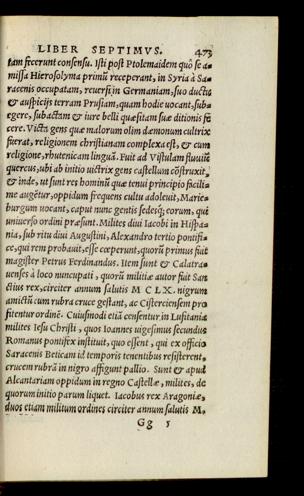 LIBER SEPTIMVS. 473
tam fecerunt consensu. Isti post Ptolemaidem quò se a-
missa Hierosolyma primũ receperant, in Syria à Sa-
racenis occupatam, reuersi in Germaniam, suo ductu
& auspicijs terram Prusiam, quam hodie uocant, sub-
egere, subactam & iure belli quæsitam suæ ditionis fe
cere. Victa gens quæ malorum olim dæmonum cultrix
fuerat, religionem christianam complexa est, & cum
religione, rhutenicam linguã. Fuit ad Vistulam fluuiũ
quercus, ubi ab initio uictrix gens castellum cõstruxit,
& inde, ut sunt res hominũ quæ tenui principio facili-
me augẽtur, oppidum frequens cultu adoleuit, Marie-
burgum uocant, caput nunc gentis sedesq́; eorum, qui
uniuerso ordini præsunt. Milites diui Iacobi in Hispa-
nia, sub ritu diui Augustini, Alexandro tertio pontifi-
ce, qui rem probauit, esse cœperunt, quorũ primus fuit
magister Petrus Ferdinandus. Item sunt & Calatra-
uenses à loco nuncupati, quorũ militiæ autor fuit San-
ctius rex, circiter annum salutis M CLX. nigrum
amictũ cum rubra cruce gestant, ac Cisterciensem pro
fitentur ordinẽ. Cuiusmodi etiã censentur in Lusitania
milites Iesu Christi, quos Ioannes uigesimus secundus
Romanus pontifex instituit, quo essent, qui ex officio
Saracenis Beticam id temporis tenentibus resisterent,
crucem rubrã in nigro affigunt pallio. Sunt & apud
Alcantariam oppidum in regno Castellæ, milites, de
quorum initio parum liquet. Iacobus rex Aragoniæ,
duos etiam militum ordines circiter annum salutis M.
Gg 5